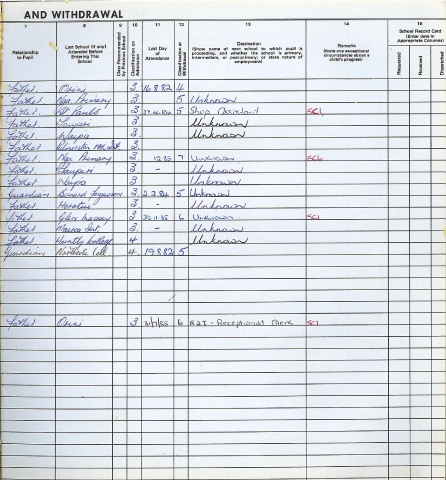 AND WITHDRAWAL
7 8 9 10 11 12 13 14 15
Relationship to Pupil
Last School (if any) Attended Before Entering This School
Class Recommended by Previous School
Classification on Admission
Last Day of Attendance
Classification at Withdrawal
Destination
(Show name of next school to which pupil is proceeding, and whether the school is primary, intermediate, or post-primary, or state nature of employment)
Remarks
(Note any exceptional circumstances about a child's progress)
School Record Card
(Enter date in Appropriate Columns)
Requested
Received
Despatched
Father Orini 3 16.8.82 4
Father Primary 3 5 Unknown
Father St Pauls 3 5 Shop Assistant SC1
Father Taupiri 3 Unknown
Father Waipa 3 Unknown
Father 3
Father Nga Primary 3 12.85 7 Unknown SC6
Father Taupiri 3 - Unknown
Father Waipa 3 Unknown
Guardian Bernard Fergusson 3 2.2.84 5 Unknown
Father Horotiu 3 - Unknown
Father Glen Massey 3 30.11.85 6 Unknown SC1
Father 3 - Unknown
Father Huntly College 4 Unknown
Guardian Northcote Coll. 4 19.8.82 5
Father Orini 3 31/1/85 6 - Receptionist Clerk SC1